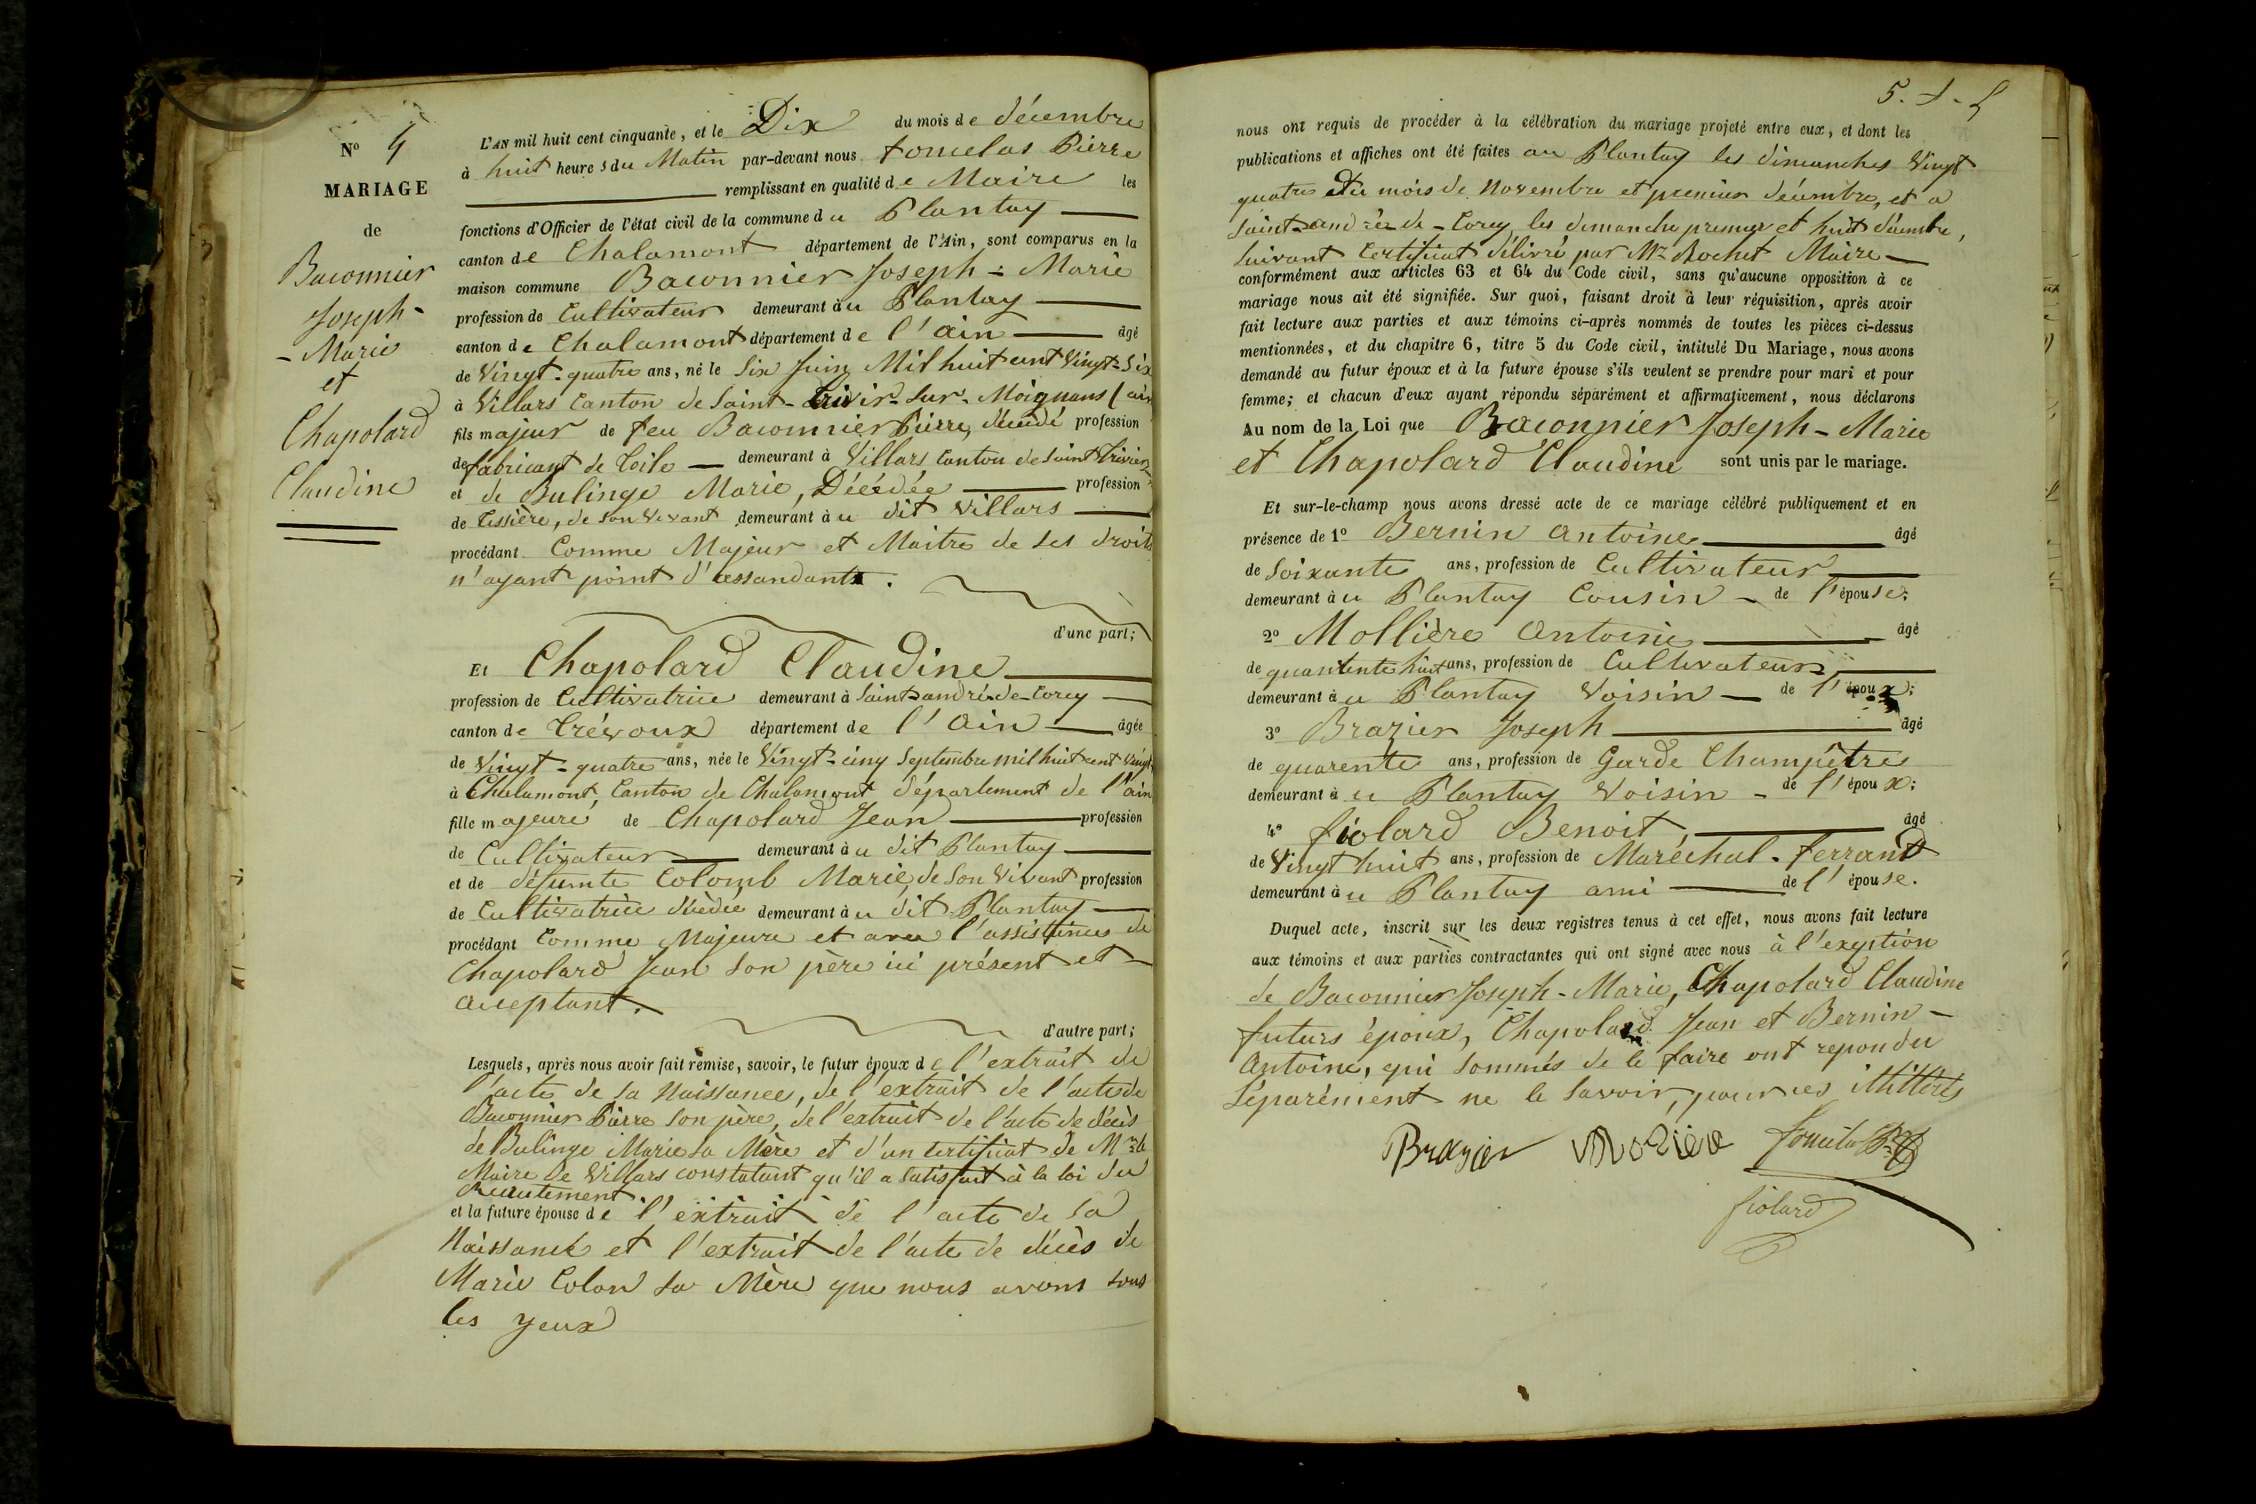 Nº 4
MARIAGE
de
Baconnier
Joseph-
-Marie
et
Chapolard
Claudine
L'AN mil huit cent cinquante, et le Dix du mois de décembre
à huit heures du Matin par-devant nous Pierre
remplissant en qualité de Maire les
fonctions d'Officier de l'état civil de la commune du Plantay
canton de Chalamont département de l'Ain, sont comparus en la
maison commune Baconnier Joseph-Marie
profession de Cultivateur demeurant au Plantay
canton de Chalamont département de l'ain âgé
de Vingt-quatre ans, né le Six Juin Mil huit cent Vingt-Six
à Villars Canton de Saint-Trivier-Sur-Moignans (ain
fils majeur de feu Baconnier Pierre, décédé profession
de fabricant de toile demeurant à Villars Canton de Saint Trivier
et de Bulinge Marie, Décédée profession
de tissière, de son vivant demeurant au dit Villars
procédant Comme Majeur et Maitre de ses droits
n'ayant point d'assandants.
d'une part;
Et Chapolard Claudine
profession de Cultivatrice demeurant à Saint-andré-de-Corcy
canton de Trévoux département de l'Ain âgée
de Vingt-quatre ans, née le Vingt-cinq Septembre mil huit cent Vingt
à Chalamont, Canton de Chalamont département de l'ain
fille majeure de Chapolard Jean profession
de Cultivateur demeurant au dit Plantay
et de défunte Colomb Marie de son vivant profession
de Cultivatrice décédée demeurant au dit Plantay
procédant Comme Majeure et avec l'assistance de
Chapolard Jean son père ici présent et
acceptant.
d'autre part;
Lesquels, après nous avoir fait remise, savoir, le futur époux de l'extrait de
l'acte de sa Naissance, de l'extrait de l'acte de
Baconnier Pierre son père, de l'extrait de l'acte de décès
de Bulinge Marie sa Mère et d'un certificat de Mr le
Maire de Villars constatant qu'il a satisfait à la loi du
recrutement
et la future épouse de l'extrait de l'acte de sa
Naissance et l'extrait de l'acte de décès de
Marie Colon sa Mère que nous avons sous
les yeux
5.
nous ont requis de procéder à la célébration du mariage projeté entre eux, et dont les
publications et affiches ont été faites au Plantay les dimanches Vingt
quatre du mois de Novembre et premier décembre, et a
Saint-andrée de-Corcy les dimanche premier et huit décembre,
Suivant Certificat délivré par Mr Rochet Maire
conformément aux articles 63 et 64 du Code civil, sans qu'aucune opposition à ce
mariage nous ait été signifiée. Sur quoi, faisant droit à leur réquisition, après avoir
fait lecture aux parties et aux témoins ci-après nommés de toutes les pièces ci-dessus
mentionnées, et du chapitre 6, titre 5 du Code civil, intitulé Du Mariage, nous avons
demandé au futur époux et à la future épouse s'ils veulent se prendre pour mari et pour
femme; et chacun d'eux ayant répondu séparément et affirmativement, nous déclarons
Au nom de la Loi que Baconnier Joseph-Marie
et Chapolard Claudine sont unis par le mariage.
Et sur-le-champ nous avons dressé acte de ce mariage célébré publiquement et en
présence de 1º Bernin Antoine âgé
de Soixante ans, profession de Cultivateur
demeurant au Plantay Cousin de l'épouse;
2º Mollière Antoine âgé
de quarante huit ans, profession de Cultivateur
demeurant au Plantay Voisin de l'époux;
3º Brazier Joseph âgé
de quarente ans, profession de Garde Champêtre
demeurant au Plantay Voisin de l'époux;
4º fiolard Benoit âgé
de Vingt huit ans, profession de Maréchal-ferrand
demeurant au Plantay ami de l'épouse.
Duquel acte, inscrit sur les deux registres tenus à cet effet, nous avons fait lecture
aux témoins et aux parties contractantes qui ont signé avec nous à l'exeption
de Baconnier Joseph-Marie, Chapolard Claudine
futurs époux, Chapolard Jean et Bernin
Antoine, qui sommés de le faire ont repondu
Séparément ne le savoir, pour ces
Brazier Molière
fiolard